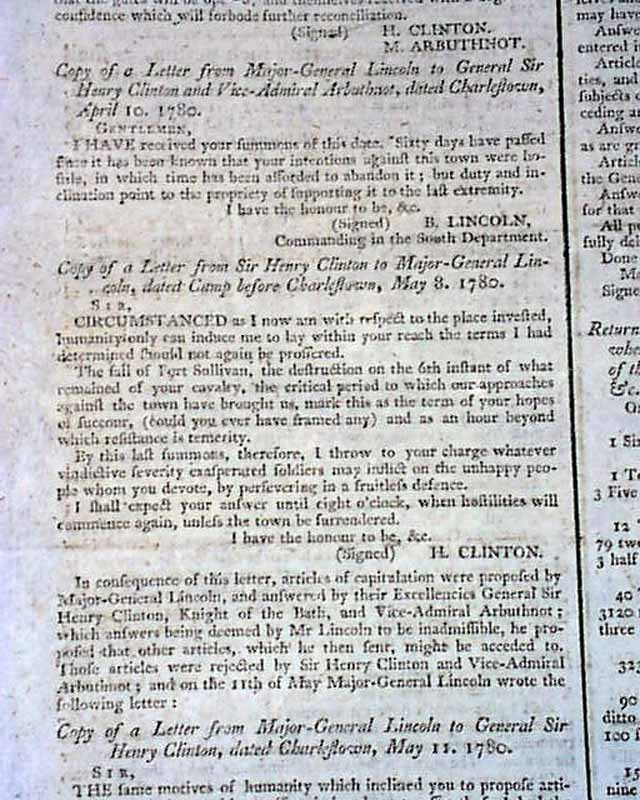 confidence which will forbode further reconciliation.
(Signed) H. CLINTON.
M. ARBUTHNOT.
Copy of a Letter from Major-General Lincoln to General Sir
Henry Clinton and Vice-Admiral Arbuthnot, dated Charlestown,
April 10. 1780.
GENTLEMEN,
I HAVE received your summons of this date. Sixty days have passed
since it has been known that your intentions against this town were ho-
stile, in which time has been afforded to abandon it; but duty and in-
clination point to the propriety of supporting it to the last extremity.
I have the honour to be, &c.
(Signed) B. LINCOLN,
Commanding in the South Department.
Copy of a Letter from Sir Henry Clinton to Major-General Lin-
coln, dated Camp before Charlestown, May 8. 1780.
SIR,
CIRCUMSTANCED as I now am with respect to the place invested,
humanity only can induce me to lay within your reach the terms I had
determined should not again be proffered.
The fall of Fort Sullivan, the destruction on the 6th instant of what
remained of your cavalry, the critical period to which our approaches
against the town have brought us, mark this as the term of your hopes
of succour, (could you ever have framed any) and as an hour beyond
which resistance is temerity.
By this last summons, therefore, I throw to your charge whatever
vindictive severity exasperated soldiers may inflict on the unhappy peo-
ple whom you devote, by persevering in a fruitless defence.
I shall expect your answer until eight o'clock, when hostilities will
commence again, unless the town be surrendered.
I have the honour to be, &c.
(Signed) H. CLINTON.
In consequence of this letter, articles of capitulation were proposed by
Major-General Lincoln, and answered by their Excellencies General Sir
Henry Clinton, Knight of the Bath, and Vice-Admiral Arbuthnot;
which answers being deemed by Mr Lincoln to be inadmissible, he pro-
posed that other articles, which he then sent, might be acceded to.
Those articles were rejected by Sir Henry Clinton and Vice-Admiral
Arbuthnot; and on the 11th of May Major-General Lincoln wrote the
following letter:
Copy of a Letter from Major-General Lincoln to General Sir
Henry Clinton, dated Charlestown, May 11. 1780.
SIR,
THE same motives of humanity which inclined you to propose arti-
may have
entered in
Article
ties, and
subjects o
ceding a
Answ
as are gr
Article
the Gene
Answe
for that
All p
fully deli
Done
Signe
Return
of th
&c.
1 Six
3 Five
12
79 two
3 half
40
3120
three
323
90
ditto
100
15
nine